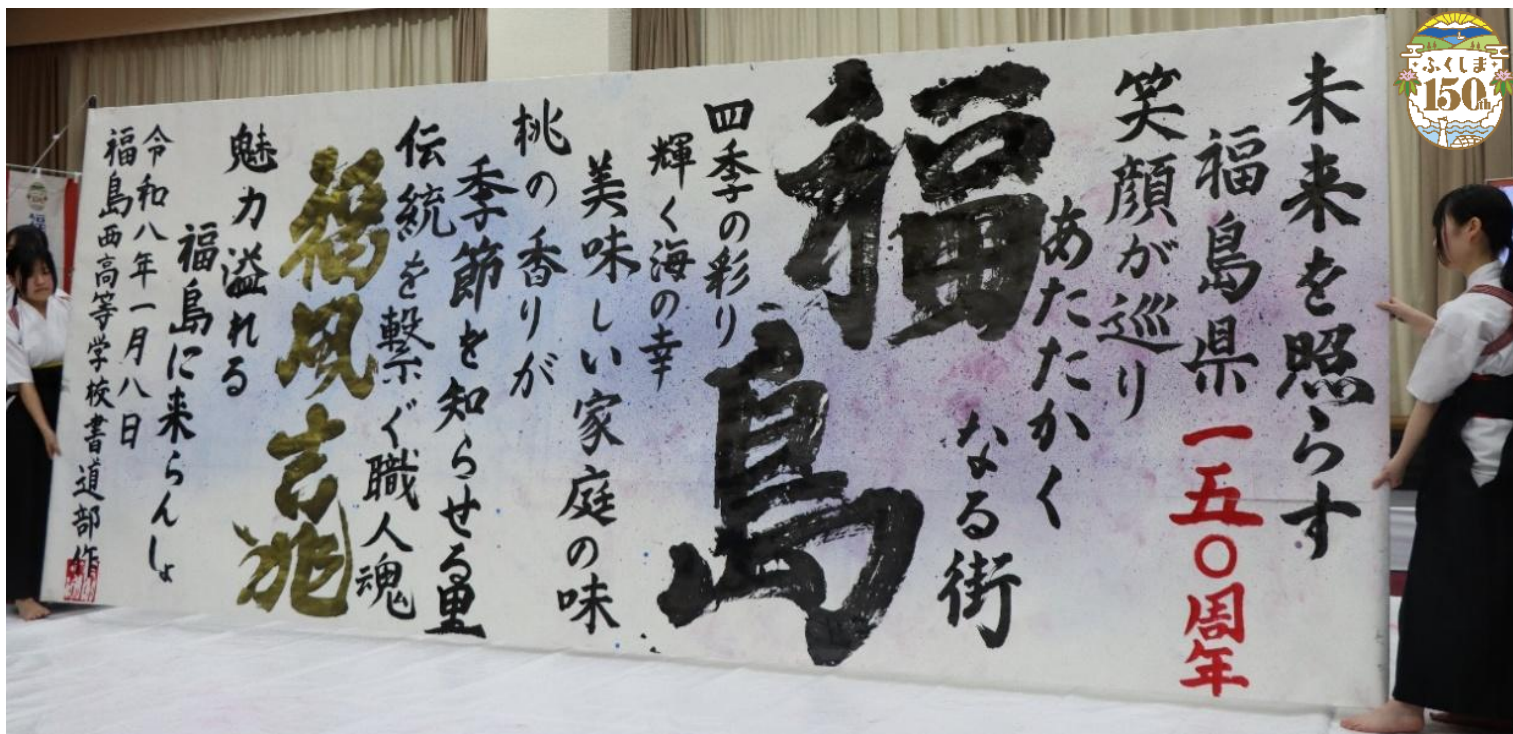 未来を照らす
福島県一五〇周年
笑顔が巡り
あたたかく
なる街
福島
四季の彩り
輝く海の幸
美味しい家庭の味
桃の香りが
季節を知らせる里
伝統を繋ぐ職人魂
福風吉兆
魅力溢れる
福島に来らんしょ
令和八年一月八日
福島西高等学校書道部作
ふくしま
150th